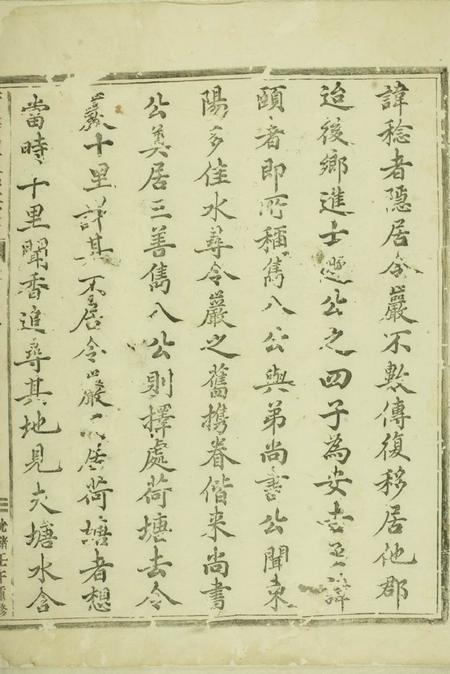 諱稔者隱居令巖不數傳復移居他郡
迨後鄉進士公之四子為安諱
頤者即所稱雋八公與弟尚書公聞東
陽多佳水尋令巖之舊携眷偕来尚書
公奠居三善雋八公則擇處荷塘去令
巖十里詳其不居令巖居荷塘者想
當時十里聞香追尋其地見夾塘水含
緒壬午重修